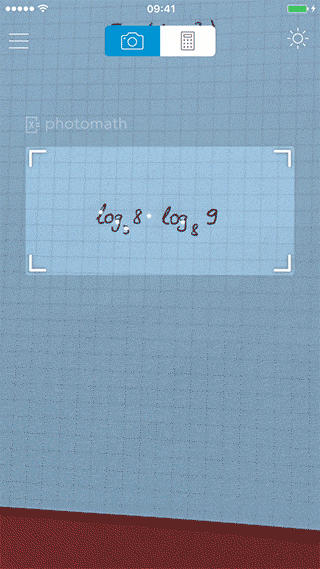 09:41
photomath
log 8 · log₈ 9